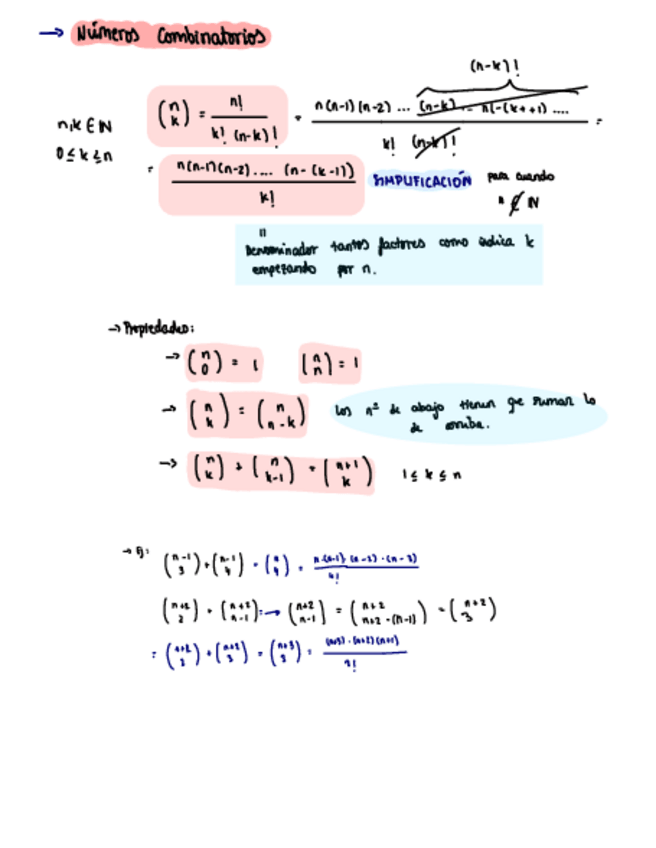 → Números Combinatorios
(n-k)!
n,k ∈ ℕ
0 ≤ k ≤ n
(n k) = n! / k! (n-k)! = n(n-1)(n-2) ... (n-k) / k! (n-k)! =
= n(n-1)(n-2).... (n-(k-1)) / k! SIMPLIFICACIÓN para cuando
n ∉ ℕ
Denominador tantos factores como indica k
empezando por n.
→ Propiedades:
→ (n 0) = 1 (n n) = 1
→ (n k) = (n n-k) Los nº de abajo tienen qe sumar lo
de arriba.
→ (n k) + (n k-1) = (n+1 k) 1 ≤ k ≤ n
→ Ej: (n-1 3) + (n-1 4) = (n 4) = n·(n-1)·(n-2)·(n-3) / 4!
(n+2 2) + (n+2 n-1) → (n+2 n-1) = (n+2 n+2-(n-1)) = (n+2 3)
= (n+2 2) + (n+2 3) = (n+3 3) = (n+3)·(n+2)(n+1) / 3!